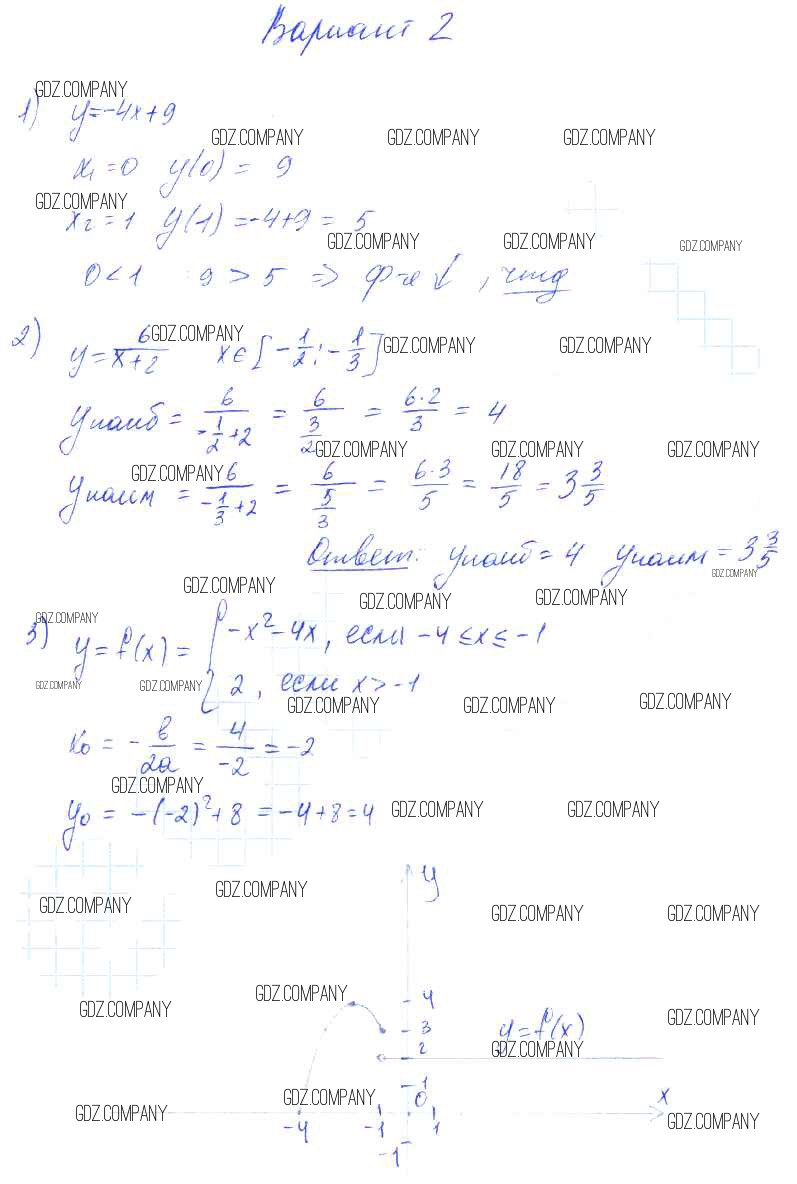 Вариант 2
GDZ.COMPANY
1) y=-4x+9
GDZ.COMPANY GDZ.COMPANY GDZ.COMPANY
x₁=0 y(0) = 9
GDZ.COMPANY
x₂=1 y(1)=-4+9=5
GDZ.COMPANY GDZ.COMPANY GDZ.COMPANY
0<1 9>5 => ф-я ↓, чтд
2) y=6/(x+2) x∈[-1/2; -1/3]
GDZ.COMPANY GDZ.COMPANY GDZ.COMPANY
yнаиб = 6/(-1/2+2) = 6/(3/2) = 6·2/3 = 4
GDZ.COMPANY GDZ.COMPANY GDZ.COMPANY
GDZ.COMPANY
yнаим = 6/(-1/3+2) = 6/(5/3) = 6·3/5 = 18/5 = 3 3/5
Ответ: yнаиб = 4 yнаим = 3 3/5
GDZ.COMPANY
GDZ.COMPANY GDZ.COMPANY GDZ.COMPANY
GDZ.COMPANY
3) y=f(x) = { -x²-4x, если -4≤x≤-1
2, если x>-1
GDZ.COMPANY GDZ.COMPANY GDZ.COMPANY GDZ.COMPANY GDZ.COMPANY
x₀ = -b/2a = 4/-2 = -2
GDZ.COMPANY
y₀ = -(-2)²+8 = -4+8=4
GDZ.COMPANY GDZ.COMPANY
y
GDZ.COMPANY
GDZ.COMPANY GDZ.COMPANY GDZ.COMPANY
GDZ.COMPANY
4
GDZ.COMPANY GDZ.COMPANY
3
y=f(x)
2
GDZ.COMPANY
1
GDZ.COMPANY
0
x
GDZ.COMPANY GDZ.COMPANY
-4 -1 1
-1